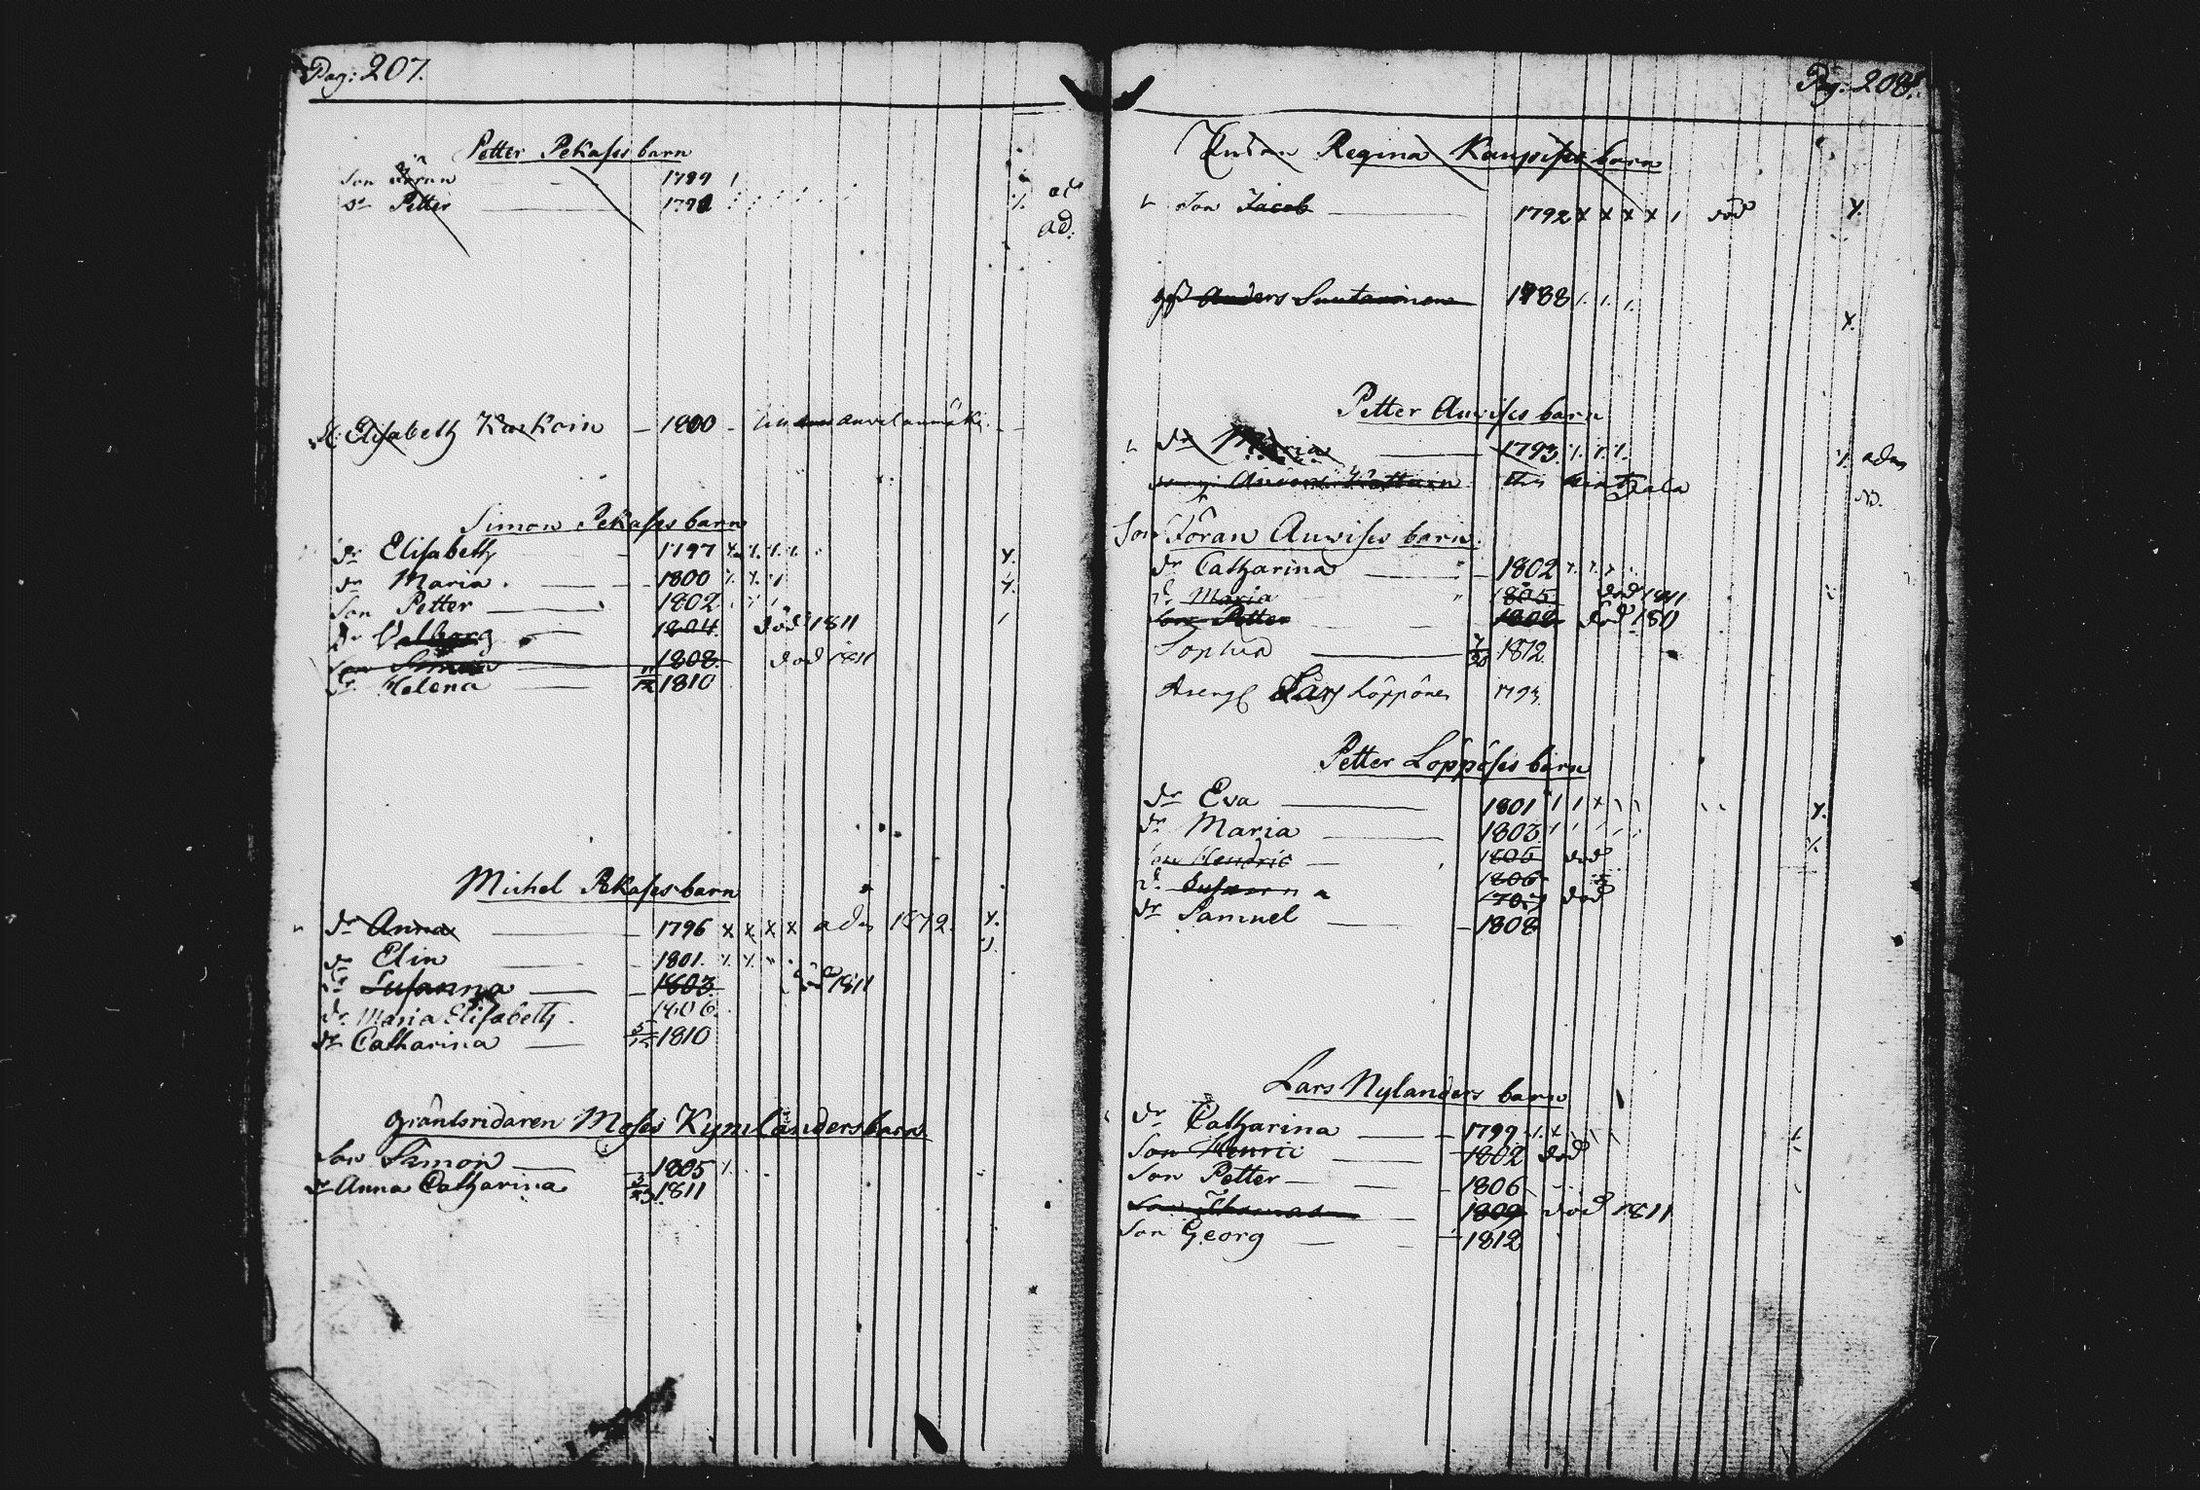 Pag: 207.
Petter Pekaſses barn
Son Jöran 1789
Sn Petter 179
ad:
Eliſabeth Kaskein 1800
Simon Pekaſses barn
dr Eliſabeth 1797
dr Maria 1800
Son Petter 1802
dr Valborg 1804 död 1811
Son Simon 1808 död 1811
dr Helena 1810
Michel Pekaſses barn
dr Anna 1796 x x x x
dr Elin 1801
dr Suſanna 1803 död 1811
dr Maria Eliſabeth 1806
dr Catharina 1810
gräntsridaren Moſes Kymlanders barn
Son Simon 1805
dr Anna Catharina 1811
Pag: 208.
Enkan Regina Kaupiſses barn
Son Jacob 1792 x x x x död
Anders Suutarinen 1788
Petter Auviſes barn
dr Maria 1793
Son Jöran Auviſes barn
dr Catharina 1802
dr Maria 1805 död 1811
Son Petter 1808 död
Sophia 1812
Lars Löppönen 1793
Petter Löppöſes barn
dr Eva 1801
dr Maria 1803
Son Hendric 1806 död
dr Suſanna död
dr Samuel 1808
Lars Nylanders barn
dr Catharina 1799
Son Henric 1802 död
Son Petter 1806
Son Thomas 1809 död 1811
Son Georg 1812